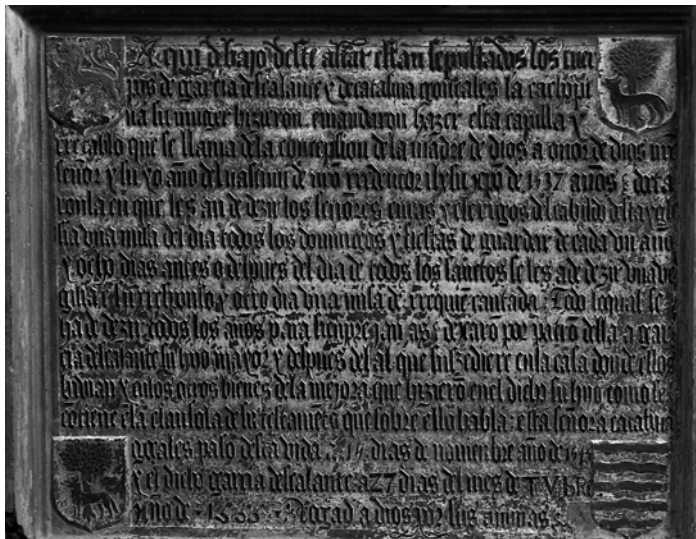 Aqui debajo deste altar estan sepultados los cuer
pos de garcia descalante y de catalina gonçales la cachopi
na su muger hizieron e mandaron hazer esta capilla y
rretablo que se llama de la conception de la madre de dios a onor de dios nro
señor y su yo año del nascim de nro rredentor ihesu xpo de 1537 años dexa
ron la en que les an de dezir los señores curas y clerigos del cabildo desta ygle
sia vna misa del dia todos los domingos y fiestas de guardar de cada vn año
y ocho dias antes o despues del dia de todos los sanctos se les a de dezir vna ve
gilia e su rresponso y otro dia vna misa de rrequien cantada todo lo qual se
ha de dezir todos los años para siempre jamas dexaron por patron della a gar
cia descalante su hijo mayor y despues del al que subcediere en la casa donde ellos
biuian y en los otros bienes de la mejora que hizieron en el dicho su hijo como se
contiene en la clausola de su testamento que sobre ello habla esta señora catalina
gçales paso desta vida a 15 dias de nouiembre año de
y el dicho garcia descalante a 27 dias del mes de
Año de rogad a dios por sus animas